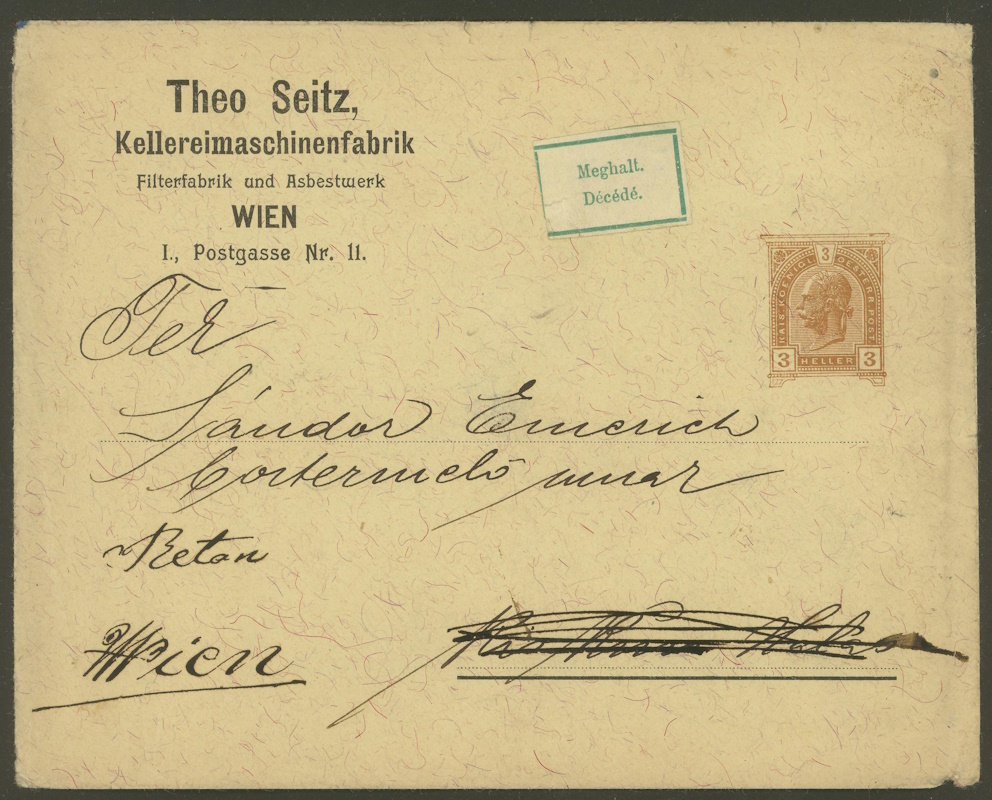 Theo Seitz,
Kellereimaschinenfabrik
Filterfabrik und Asbestwerk
WIEN
I., Postgasse Nr. 11.
Meghalt.
Décédé.
3
KAIS. KOENIGL. OESTERR. POST
3 HELLER 3
Sándor Emerich
Retour
Wien